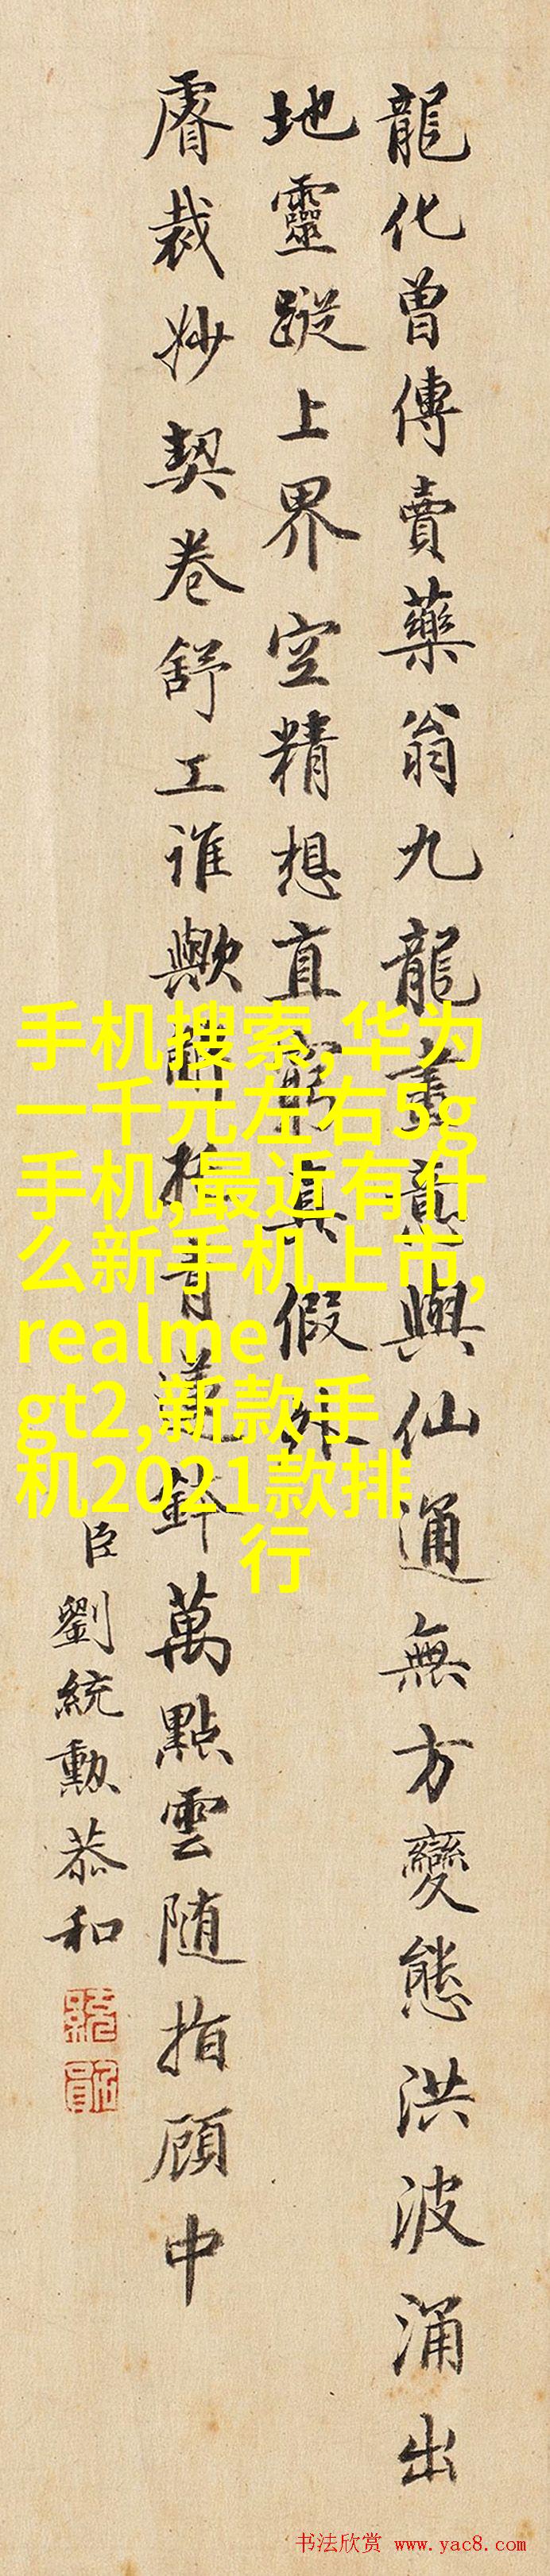 龍化曾傳賣藥翁九龍畫意與仙通無方變態洪波涌出
地靈蹤上界空精想直窮真假外
睿裁妙契卷舒工誰歟青蓮萬點雲隨指顧中
臣劉統勳恭和
手机搜索,华为
一千元左右5g
手机,最近有什
么新手机上市,
realme
gt2,新款手
机2021款排
行
书法欣赏 www.yac8.com